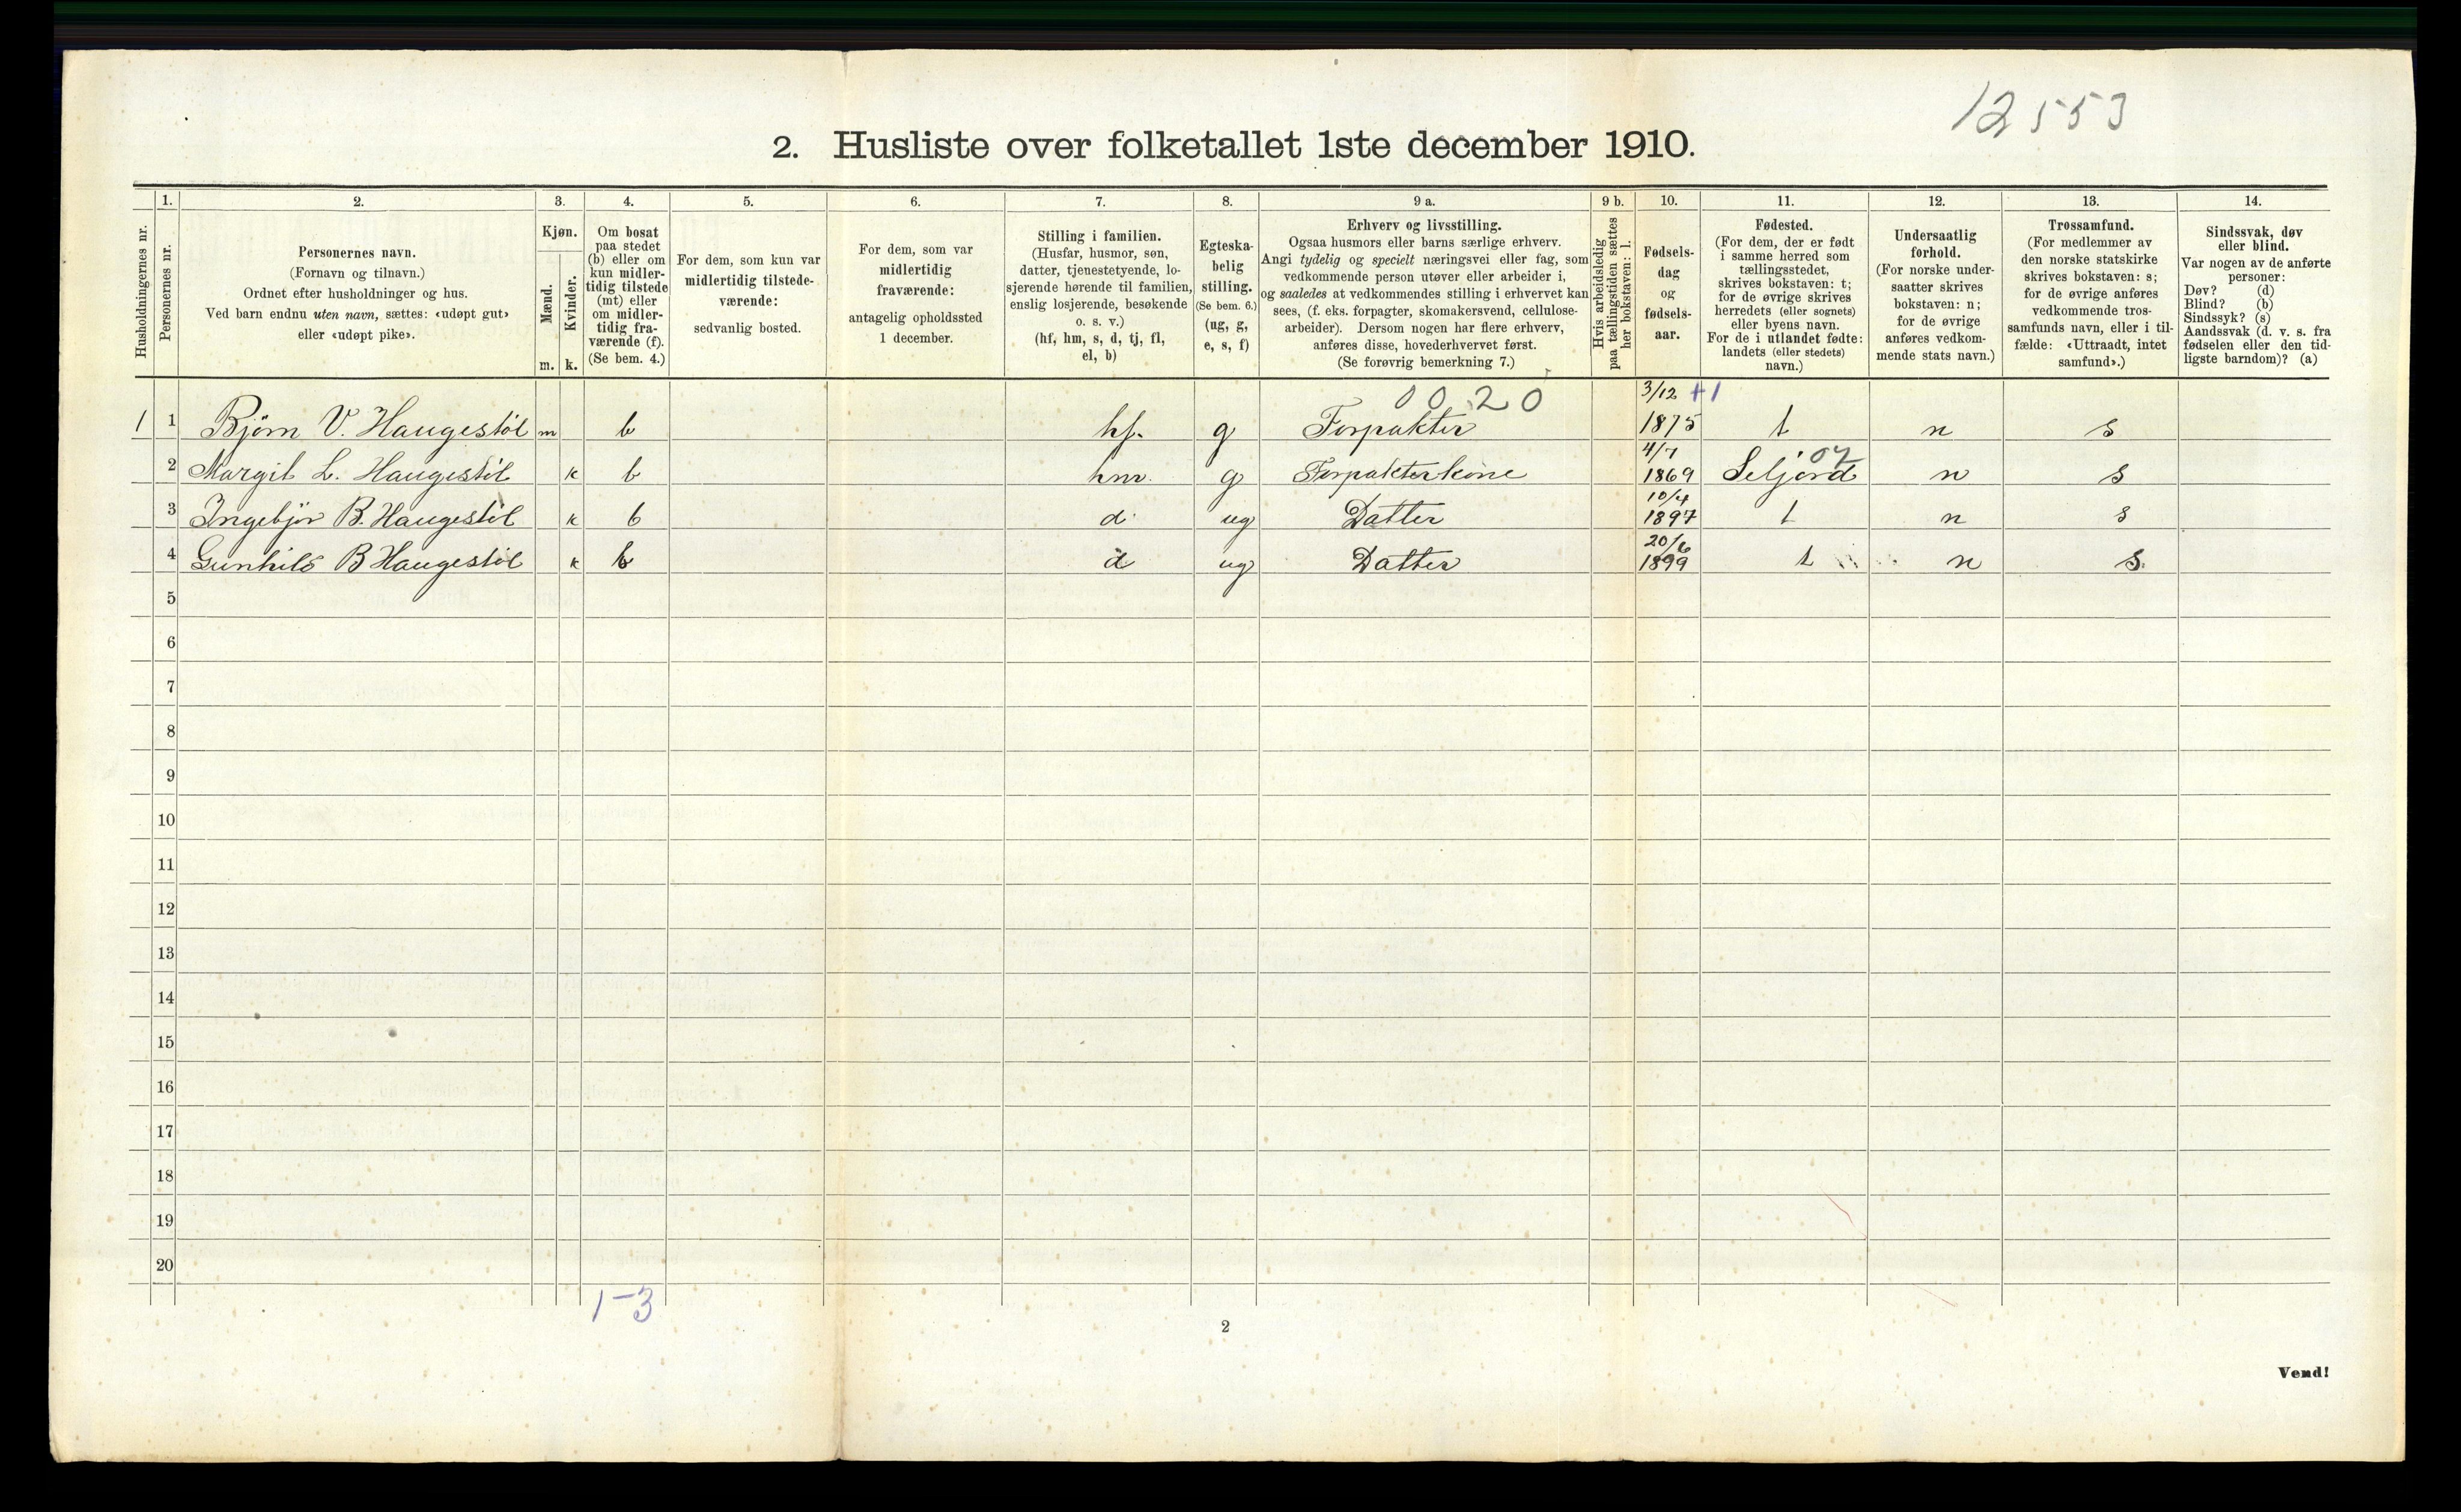 12553
2. Husliste over folketallet 1ste december 1910.
Husholdningernes nr.
1.
Personernes nr.
2.
Personernes navn.
(Fornavn og tilnavn.)
Ordnet efter husholdninger og hus.
Ved barn endnu uten navn, sættes: «udøpt gut»
eller «udøpt pike».
3.
Kjøn.
Mænd.
Kvinder.
m. k.
4.
Om bosat
paa stedet
(b) eller om
kun midler-
tidig tilstede
(mt) eller
om midler-
tidig fra-
værende (f).
(Se bem. 4.)
5.
For dem, som kun var
midlertidig tilstede-
værende:
sedvanlig bosted.
6.
For dem, som var
midlertidig
fraværende:
antagelig opholdssted
1 december.
7.
Stilling i familien.
(Husfar, husmor, søn,
datter, tjenestetyende, lo-
sjerende hørende til familien,
enslig losjerende, besøkende
o. s. v.)
(hf, hm, s, d, tj, fl,
el, b)
8.
Egteska-
belig
stilling.
(Se bem. 6.)
(ug, g,
e, s, f)
9 a.
Erhverv og livsstilling.
Ogsaa husmors eller barns særlige erhverv.
Angi tydelig og specielt næringsvei eller fag, som
vedkommende person utøver eller arbeider i,
og saaledes at vedkommendes stilling i erhvervet kan
sees, (f. eks. forpagter, skomakersvend, cellulose-
arbeider). Dersom nogen har flere erhverv,
anføres disse, hovederhvervet først.
(Se forøvrig bemerkning 7.)
9 b.
Hvis arbeidsledig
paa tællingstiden sættes
her bokstaven: l.
10.
Fødsels-
dag
og
fødsels-
aar.
11.
Fødested.
(For dem, der er født
i samme herred som
tællingsstedet,
skrives bokstaven: t;
for de øvrige skrives
herredets (eller sognets)
eller byens navn.
For de i utlandet fødte:
landets (eller stedets)
navn.)
12.
Undersaatlig
forhold.
(For norske under-
saatter skrives
bokstaven: n;
for de øvrige
anføres vedkom-
mende stats navn.)
13.
Trossamfund.
(For medlemmer av
den norske statskirke
skrives bokstaven: s;
for de øvrige anføres
vedkommende tros-
samfunds navn, eller i til-
fælde: «Uttraadt, intet
samfund».)
14.
Sindssvak, døv
eller blind.
Var nogen av de anførte
personer:
Døv? (d)
Blind? (b)
Sindssyk? (s)
Aandssvak (d. v. s. fra
fødselen eller den tid-
ligste barndom)? (a)
0020 3/12 +1
1 1 Bjørn V. Haugestöl m b hf. g Forpakter 1875 t n s
4/7 07
2 Margit L. Haugestöl k b hm. g Forpakterkone 1869 Seljord n s
10/4
3 Ingebjör B. Haugestöl k b d ug Datter 1897 t n s
20/6
4 Gunhild B Haugestöl k b d ug Datter 1899 t n s.
5
6
7
8
9
10
11
12
13
14
15
16
17
18
19
20
1-3
2
Vend!